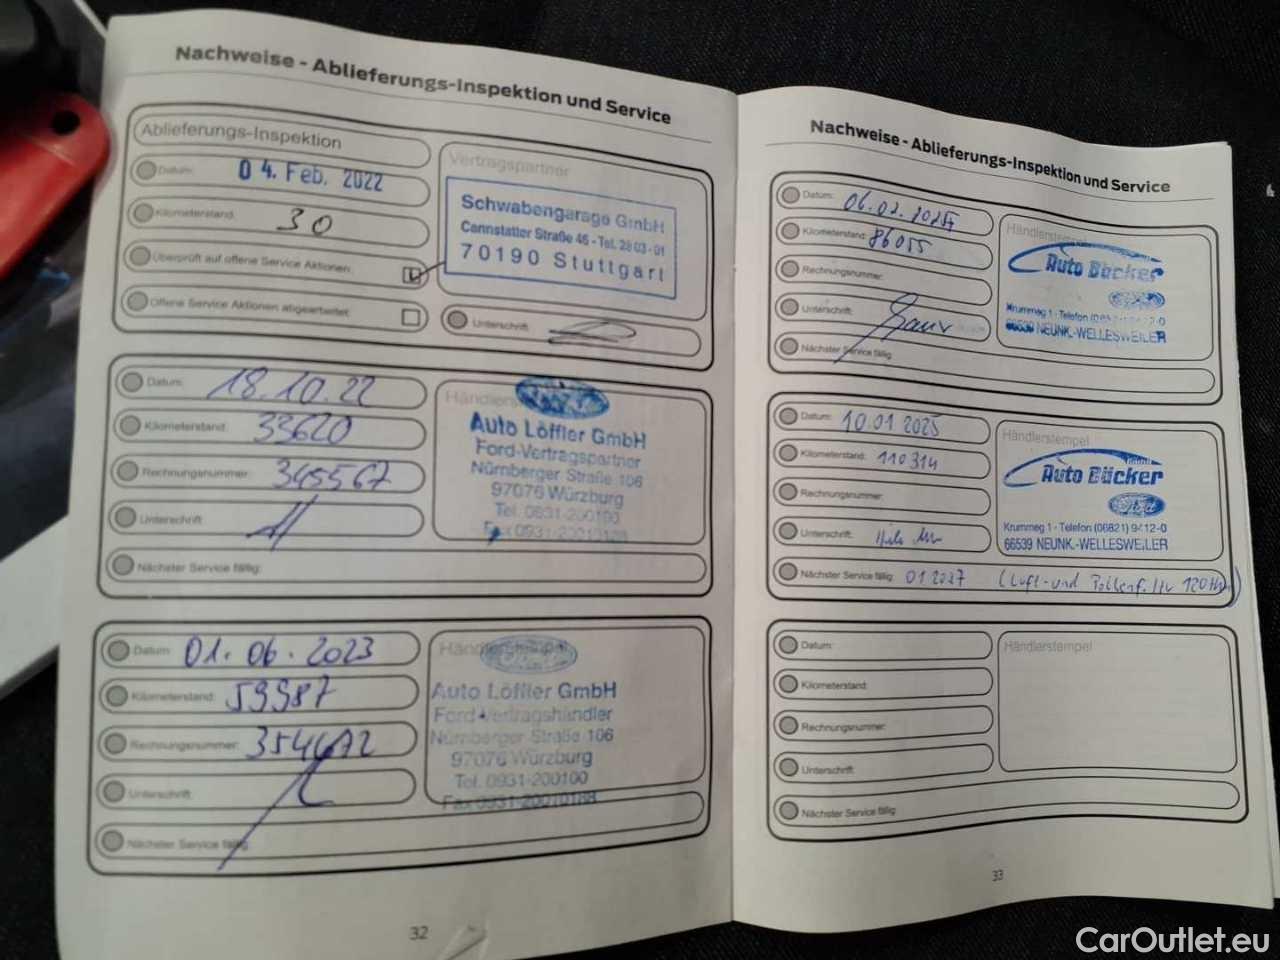 Nachweise - Ablieferungs-Inspektion und Service
Ablieferungs-Inspektion
Datum: 04. Feb. 2022
Kilometerstand: 30
Überprüft auf offene Service Aktionen:
Offene Service Aktionen abgearbeitet:
Vertragspartner
Schwabengarage GmbH
Cannstatter Straße 46 - Tel. 28 03 - 01
70190 Stuttgart
Unterschrift:
Datum: 18.10.22
Kilometerstand: 33620
Rechnungsnummer: 345567
Unterschrift:
Nächster Service fällig:
Auto Löffler GmbH
Ford-Vertragspartner
Nürnberger Straße 106
97076 Würzburg
Tel. 0931-200100
Fax 0931-20010188
Datum: 01.06.2023
Kilometerstand: 59987
Rechnungsnummer: 354672
Unterschrift:
Nächster Service fällig:
Händlerstempel
Auto Löffler GmbH
Ford-Vertragshändler
Nürnberger Straße 106
97076 Würzburg
Tel. 0931-200100
Fax 0931-20010188
32
Nachweise - Ablieferungs-Inspektion und Service
Datum: 06.02.
Kilometerstand: 86055
Rechnungsnummer:
Unterschrift:
Nächster Service fällig:
Händlerstempel
Auto Bäcker
Krummeg 1 - Telefon
66539 NEUNK.-WELLESWEILER
Datum: 10.01 2025
Kilometerstand: 110314
Rechnungsnummer:
Unterschrift:
Nächster Service fällig: 01 2027 (Luft- und Pollenf.
Händlerstempel
Auto Bäcker
GmbH
Ford
Krummeg 1 - Telefon (06821) 9412-0
66539 NEUNK.-WELLESWEILER
Datum:
Kilometerstand:
Rechnungsnummer:
Unterschrift:
Nächster Service fällig:
Händlerstempel
33
CarOutlet.eu